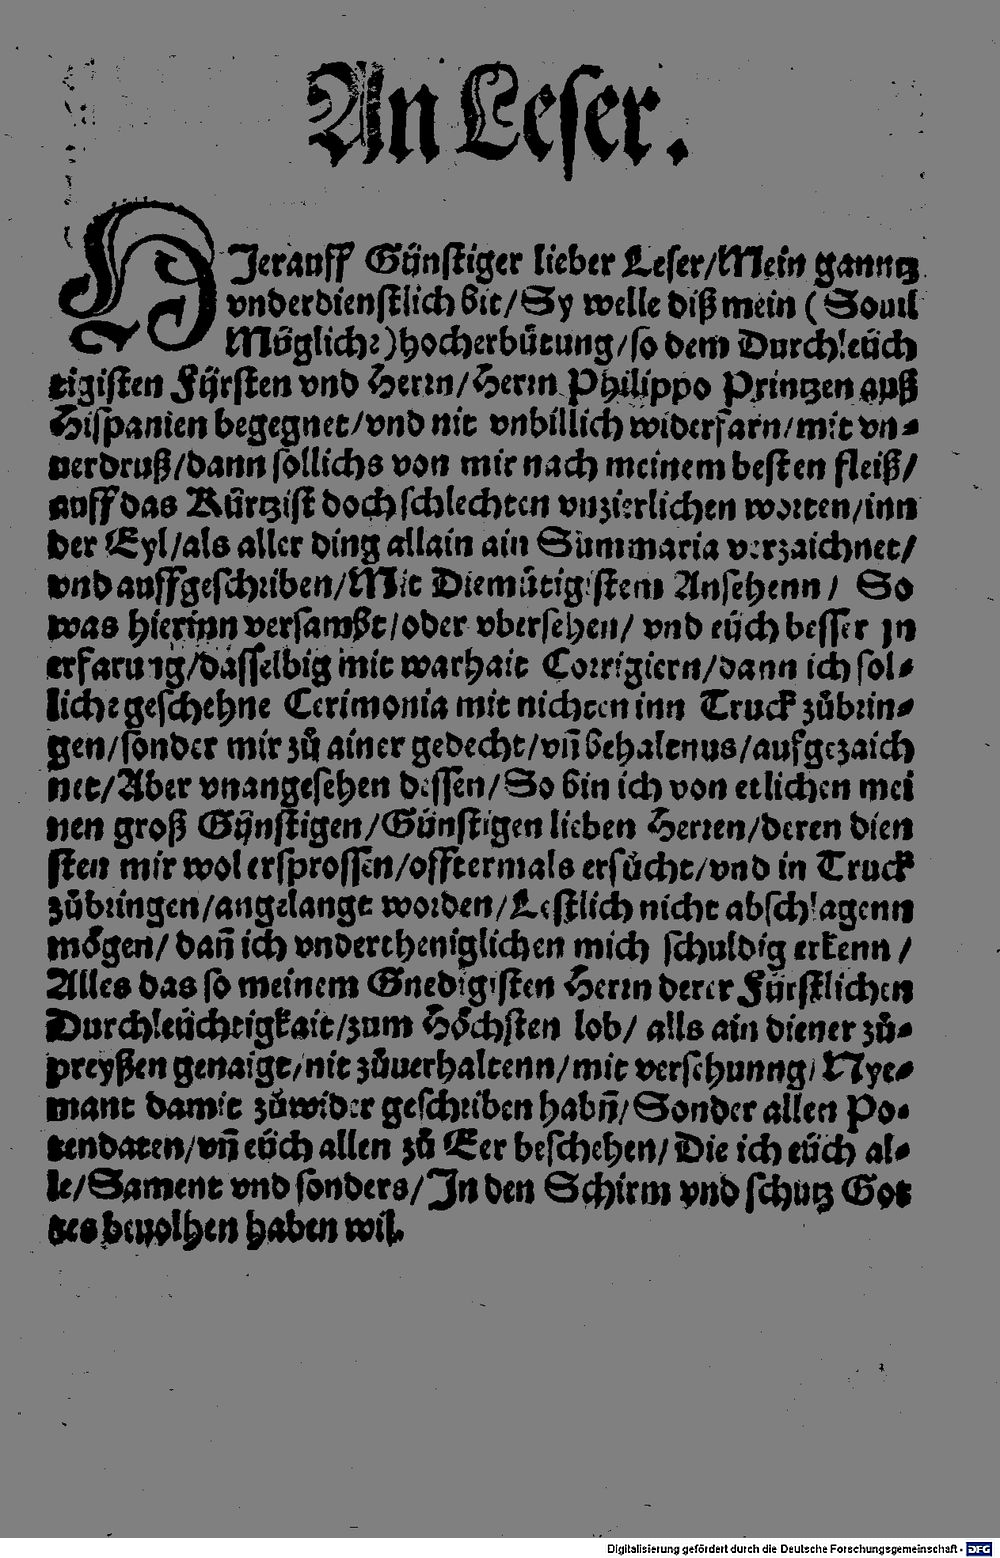 An Leser.
HJerauff Günstiger lieber Leser/Mein ganntz
vnderdienstlich bit/Sy welle diß mein (Souil
Möglich:)hocherbütung/so dem Durchleüch
tigisten Fürsten vnd Herrn/Herrn Philippo Printzen auß
Hispanien begegnet/vnd nit vnbillich widerfarn/mit vn⸗
uerdruß/dann sollichs von mir nach meinem besten fleiß/
auff das Kürtzist doch schlechten vnzierlichen worten/inn
der Eyl/als aller ding allain ain Summaria verzaichnet/
vnd auffgeschriben/Mit Diemütigistem Ansehenn/ So
was hierinn versambt/oder vbersehen/ vnd eüch besser jn
erfarung/dasselbig mit warhait Corrigiern/dann ich sol⸗
liche geschehne Cerimonia mit nichten inn Truck zůbrin⸗
gen/sonder mir zů ainer gedecht/vñ behaltnus/aufgezaich
net/Aber vnangesehen dessen/So bin ich von etlichen mei
nen groß Günstigen/Günstigen lieben Herren/deren dien
sten mir wol ersprossen/offtermals ersůcht/vnd in Truck
zůbringen/angelangt worden/Lestlich nicht abschlagenn
mögen/ dañ ich vndertheniglichen mich schuldig erkenn /
Alles das so meinem Gnedigisten Herrn derer Fürstlichen
Durchleüchtigkait/zum Höchsten lob/ alls ain diener zů⸗
preyßen genaigt/nit zůuerhaltenn/mit versehunng/Nye⸗
mant damit zůwider geschriben habñ/Sonder allen Po⸗
tendaten/vñ eüch allen zů Eer beschehen/Die ich eüch al⸗
le/Sament vnd sonders/In den Schirm vnd schutz Got
tes beuolhen haben wil.
Digitalisierung gefördert durch die Deutsche Forschungsgemeinschaft - DFG